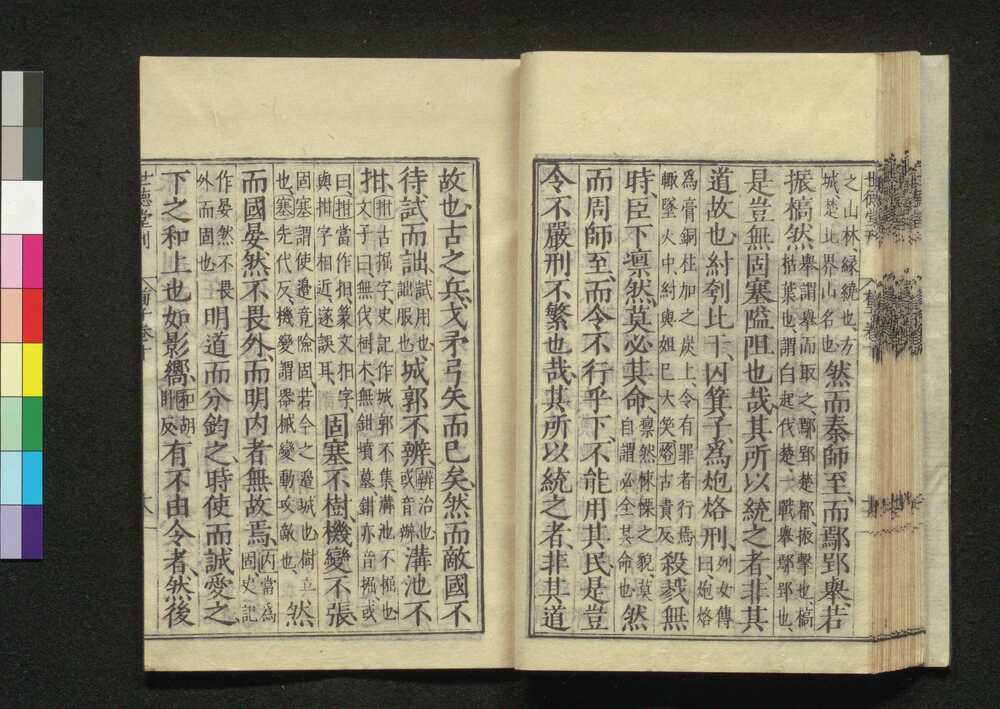 世德堂刊 荀子卷
之山林縁繞也方
城楚北界山名也
然而秦師至而鄢郢舉若
振槁然
舉謂舉而取之鄢郢楚都振擊也槁
枯葉也謂白起伐楚一戰舉鄢郢也
是豈無固塞隘阻也哉其所以統之者非其
道故也紂刳比干囚箕子爲炮烙刑
列女傳
曰炮烙
爲膏銅柱加之炭上令有罪者行焉
輙墜火中紂與妲己大笑烙古責反
殺戮無
時臣下凛然莫必其命
凛然悚慄之貌莫
自謂必全其命也
然
而周師至而令不行乎下不能用其民是豈
令不嚴刑不繁也哉其所以統之者非其道
故也古之兵戈矛弓矢而已矣然而敵國不
待試而詘
試用也
詘服也
城郭不辨
辨治也
或音辦
溝池不
拑
拑古掘字史記作城郭不集溝池不掘也
文子曰無伐樹木無鉗墳墓鉗亦音掘或
曰拑當作抇篆文抇字
與拑字相近遂誤耳
固塞不樹機變不張
固塞謂使邊竟險固若今之邊城也樹立
也塞先代反機變謂器械變動攻敵也
然
而國晏然不畏外而明内者無故焉
内當爲
固史記
作晏然不畏
外而固也
明道而分鈞之時使而誠愛之
下之和上也如影嚮
和胡
卧反
有不由令者然後
世德堂刊 荀子卷十